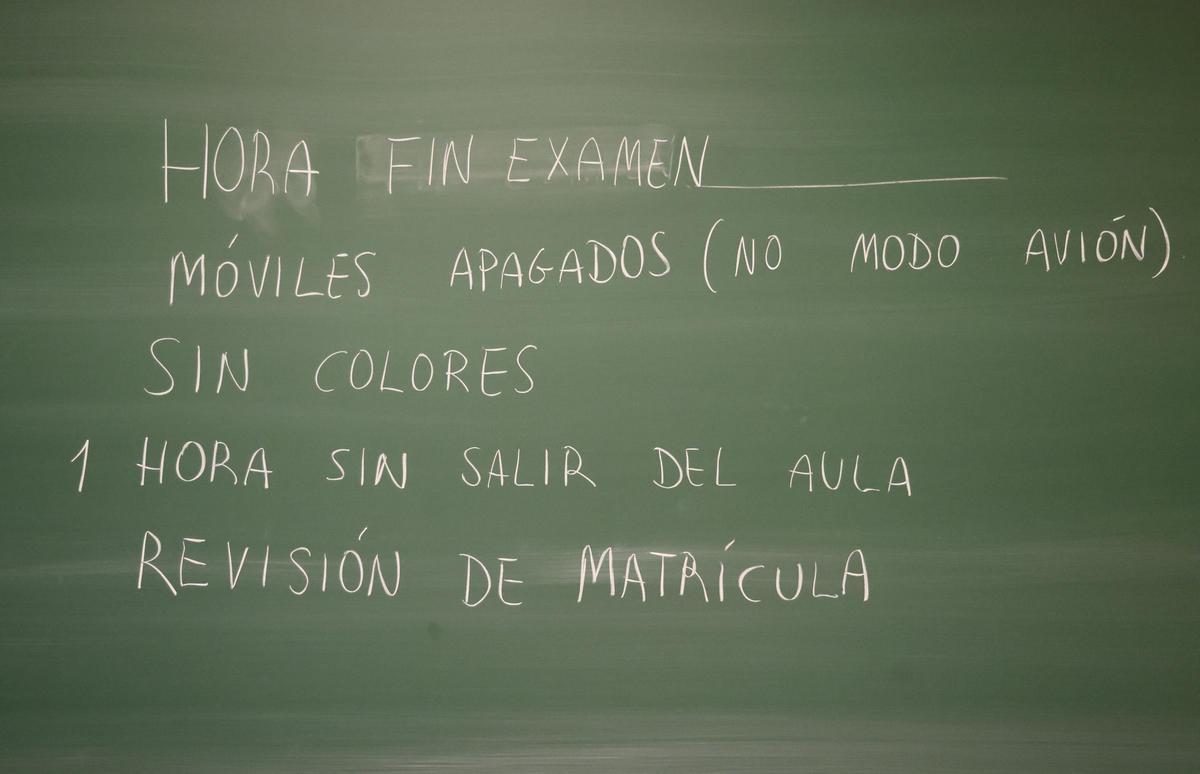 HORA FIN EXAMEN________
MÓVILES APAGADOS (NO MODO AVIÓN).
SIN COLORES
1 HORA SIN SALIR DEL AULA
REVISIÓN DE MATRÍCULA